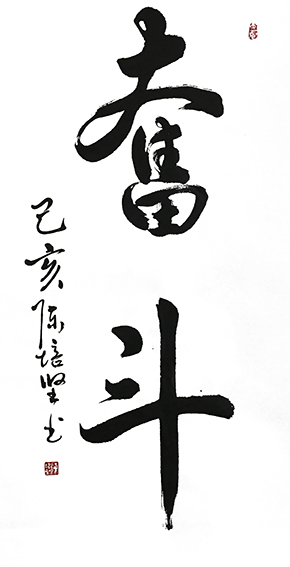 奋斗
己亥陈培坚书